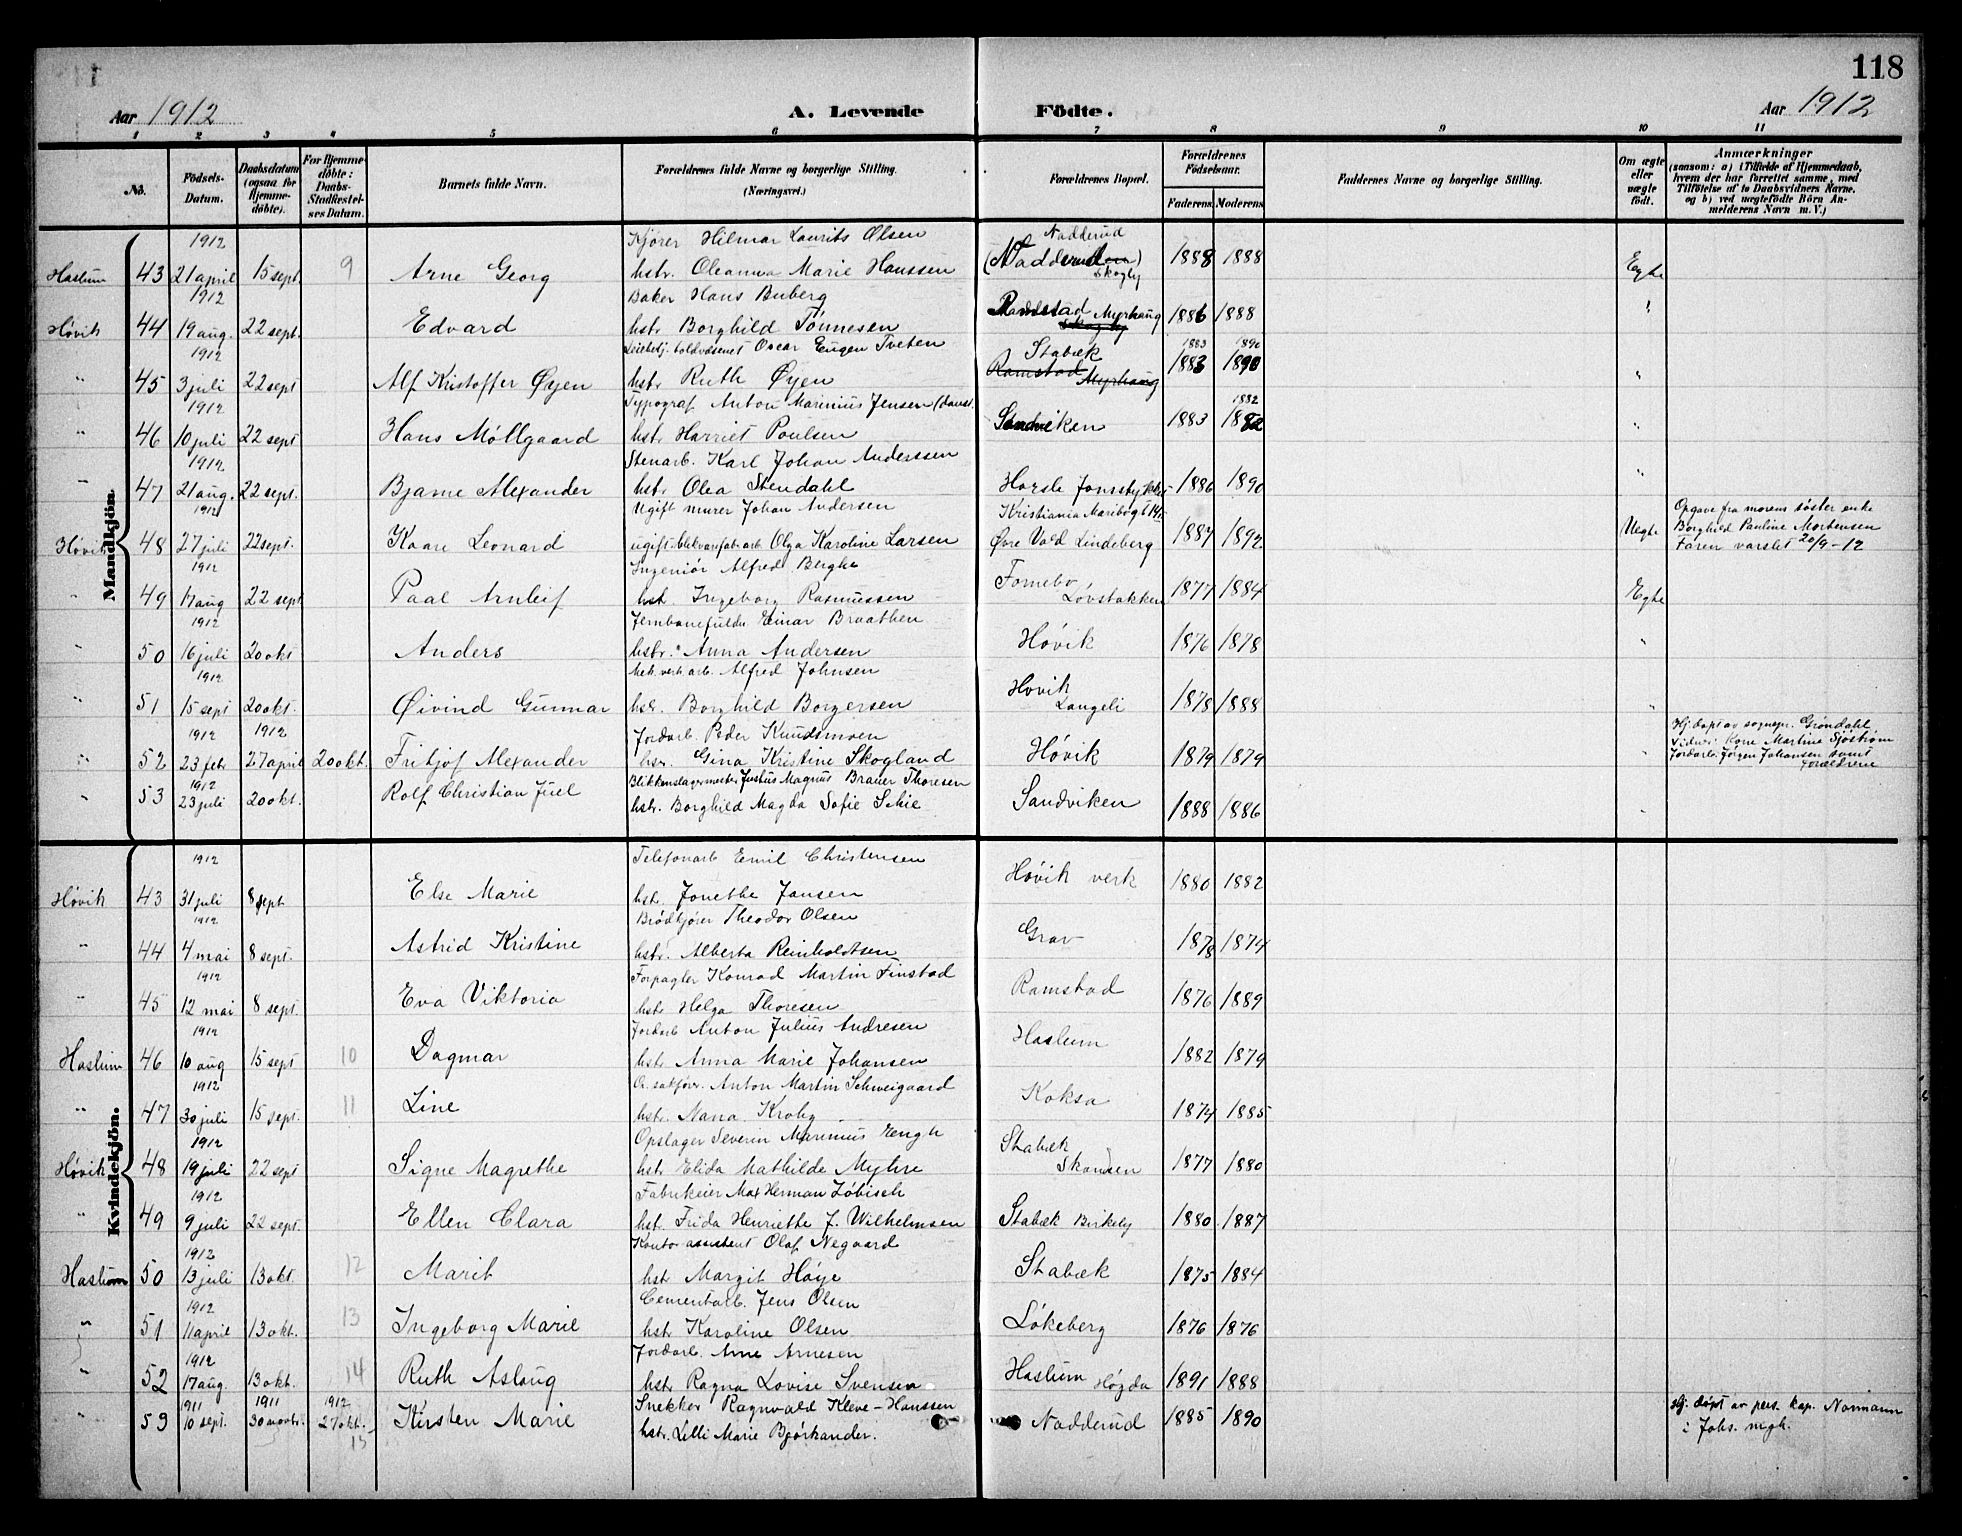 118
Aar 1912 A. Levende Födte. Aar 1912
1 2 3 4 5 6 7 8 9 10 11
No. Födsels-Datum. Daabsdatum (ogsaa for Hjemme-döbte). For Hjemme-döbte: Daabs-Stadfæstel-ses Datum. Barnets fulde Navn. Forældrenes fulde Navne og borgerlige Stilling. (Næringsvei.) Forældrenes Bopæl. Forældrenes Födselsaar. Faderens. Moderens. Faddernes Navne og borgerlige Stilling. Om ægte eller uægte födt. Anmærkninger (saasom: a) i Tilfælde af Hjemmedaab, hvem der har forrettet samme, med Tilföielse af to Daabsvidners Navne. og b) ved uægtefödte Börn An-melderens Navn m. V.)
Mandkjön.
1912 Kjører Hilmar Laurits Olsen Nadderud
Haslum 43 21 april 15 sept. 9 Arne Georg hstr. Oleanna Marie Hanssen (Nadderud) Skogly 1888 1888 Egte
1912 Baker Hans Buberg
Høvik 44 19 aug. 22 sept. Edvard hstr Borghild Tønnesen Ramstad Myrhaug Skogly 1886 1888 "
1912 toldvæsenet Oscar Eugen Tveten Stabæk 1883 1890
" 45 3 juli 22 sept Alf Kristoffer Øyen hstr Ruth Øyen Ramstad Myrhaug 1883 1890 "
1912 Typograf Anton Marinius Jensen (dansk 1882
" 46 10 juli 22 sept Hans Møllgaard hstr Harriet Poulsen Sandviken 1883 1882 "
1912 Stenarb. Karl Johan Anderssen
" 47 21 aug. 22 sept. Bjarne Alexander hstr Olea Stendahl Horsle 1886 1890 "
1912 Ugift murer Johan Andersen Kristiania Maribogt 14 Opgave fra morens søster enke
Høvik 48 27 juli 22 sept. Kaare Leonard ugift blekvarefab.arb. Olga Karoline Larsen Øvre Vold Lindeberg 1887 1892 Uegte Borghild Pauline Mortensen
Faren varslet 20/9-12
1912 Ingeniør Alfred Berghe Fornebo
" 49 17 aug 22 sept Paal Arnleif hst. Ingeborg Rasmussen Løvstakken 1877 1884 Egte
1912 Jernbanefuldm Einar Braathen
" 50 16 juli 20 okt Anders hstr. Anna Andersen Høvik 1876 1878 "
1912 Mek. verk. arb. Alfred Johnsen Høvik
" 51 15 sept 20 okt. Øivind Gunnar hsr. Borghild Borgersen Langeli 1878 1888 "
1912 1912 Jordarb. Peder Knudsmoen Hj. døpt av sognepr. Grøndahl
" 52 23 febr 27 april 20 okt. Fritjof Alexander hsr. Gina Kristine Skogland Høvik 1879 1879 " Vidner: Kone Martine Sjøstrøm
Jordarb. Jørgen Johansen samt forældrene
1912 Blikkenslagermester Justus Magnus Brauer Thoresen
" 53 23 juli 20 okt. Rolf Christian Juel hstr. Borghild Magda Sofie Schie Sandviken 1888 1886 "
Kvindekjön.
1912 Telefonarb Emil Christensen
Høvik 43 31 juli 8 sept Else Marie hstr Jonethe Jansen Høvik verk 1880 1882
1912 Brødkjører Theodor Olsen
" 44 4 mai 8 sept. Astrid Kristine hstr. Alberta Reinholdtsen Grav 1878 1874
1912 Forpagter Konrad Martin Finstad
" 45 12 mai 8 sept. Eva Viktoria hstr Helga Thoresen Ramstad 1876 1889
1912 Jordarb Anton Julius Andresen
Haslum 46 10 aug 15 sept 10 Dagmar hstr Anna Marie Johansen Haslum 1882 1879
1912 O. sakfør. Anton Martin Schweigaard
" 47 30 juli 15 sept. 11 Line hstr. Nana Krohg Koksa 1874 1885
1912 Opslager Severin Marinius Engh Stabæk
Høvik 48 19 juli 22 sept Signe Magrethe hstr Elida Mathilde Myhre Skansen 1877 1880
1912 Fabrikeier Max Herman Zøbisch
" 49 9 juli 22 sept. Ellen Clara hst. Frida Henriette J. Wilhelmsen Stabæk Birkely 1880 1887
1912 Kontorassistent Olaf Negaard
Haslum 50 13 juli 13 okt. 12 Marit hstr Margit Høye Stabæk 1875 1884
1912 Cementarb. Jens Olsen
" 51 11 april 13 okt. 13 Ingeborg Marie hstr Karoline Olsen Løkeberg 1876 1876
1912 Jordarb. Arne Arnesen
" 52 17 aug. 13 okt. 14 Ruth Aslaug hstr Ragna Lovise Svensen Haslum Høgda 1891 1888
1911 1911 1912 Snekker Ragnvald Kleve-Hanssen Hj. døpt av pers. kap. Normann
" 53 10 sept. 30 novbr. 27 okt. 15 Kirsten Marie hstr. Lilli Marie Bjørkander. Nadderud 1885 1890 i Johs. mgh.